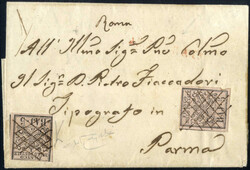 Roma
All' Illmo Sigr Pne Colmo
Il Sigr D. Pietro Fiaccadori
Tipografo in
Parma